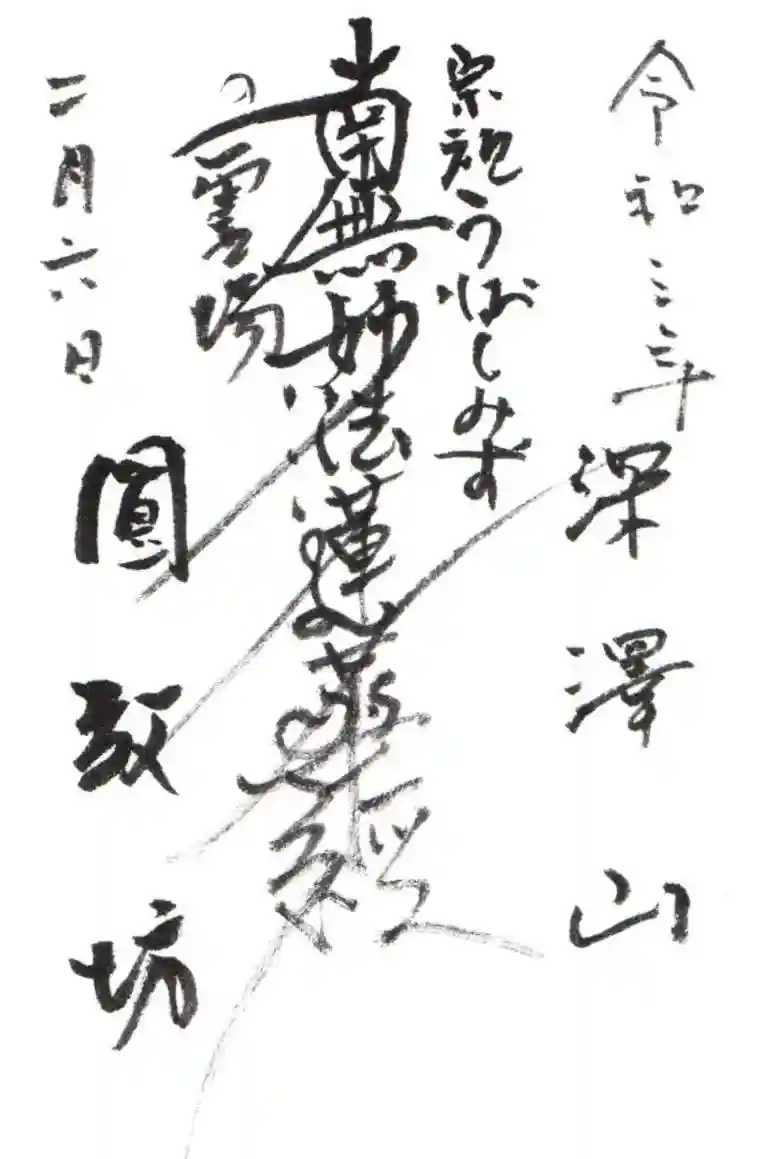 令和三年
深澤山
宗祖うばしみず
南無妙法蓮華経
の霊場
二月六日
圓教坊